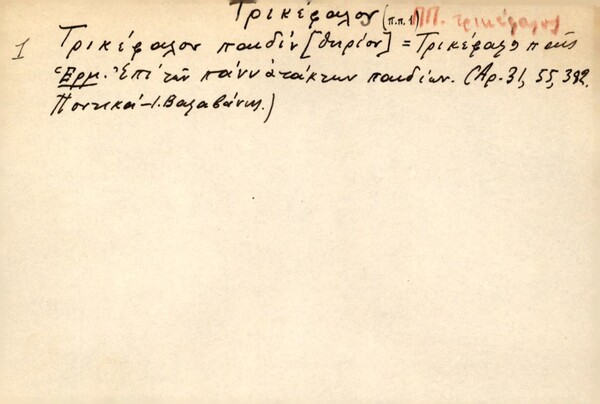 Τρικέφαλον (π.π. 1) ΠΠ. τρικέφαλος
1 Τρικέφαλον παιδίν [θηρίον] = Τρικέφαλο παιδί
Ἑρμ. Ἐπὶ τῶν πάνυ ἀτάκτων παιδίων. (Ἀρ. 31, 55, 392.
Ποντικά - Ι. Βαλαβάνης.)